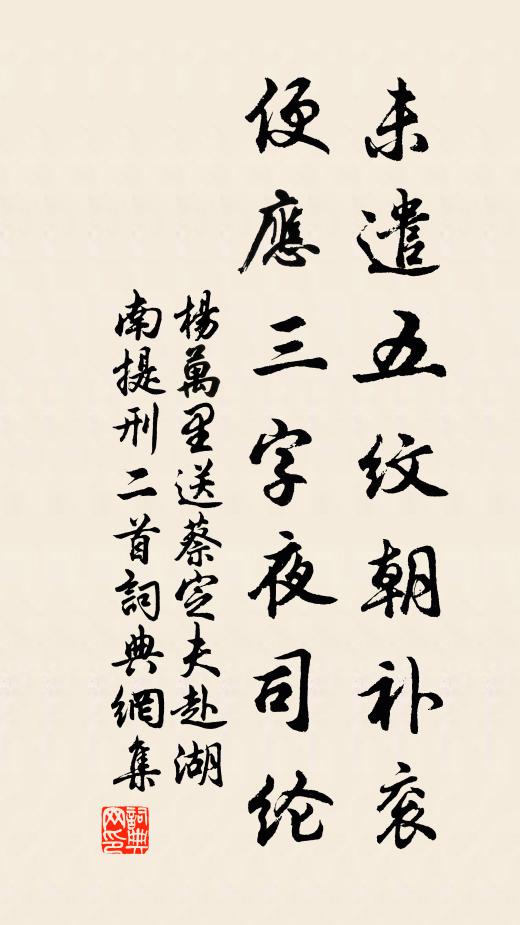 未遣五纹朝补衮
便應三字夜司纶
楊萬里送蔡定夫赴湖
南提刑二首詞典網集
詞典网印